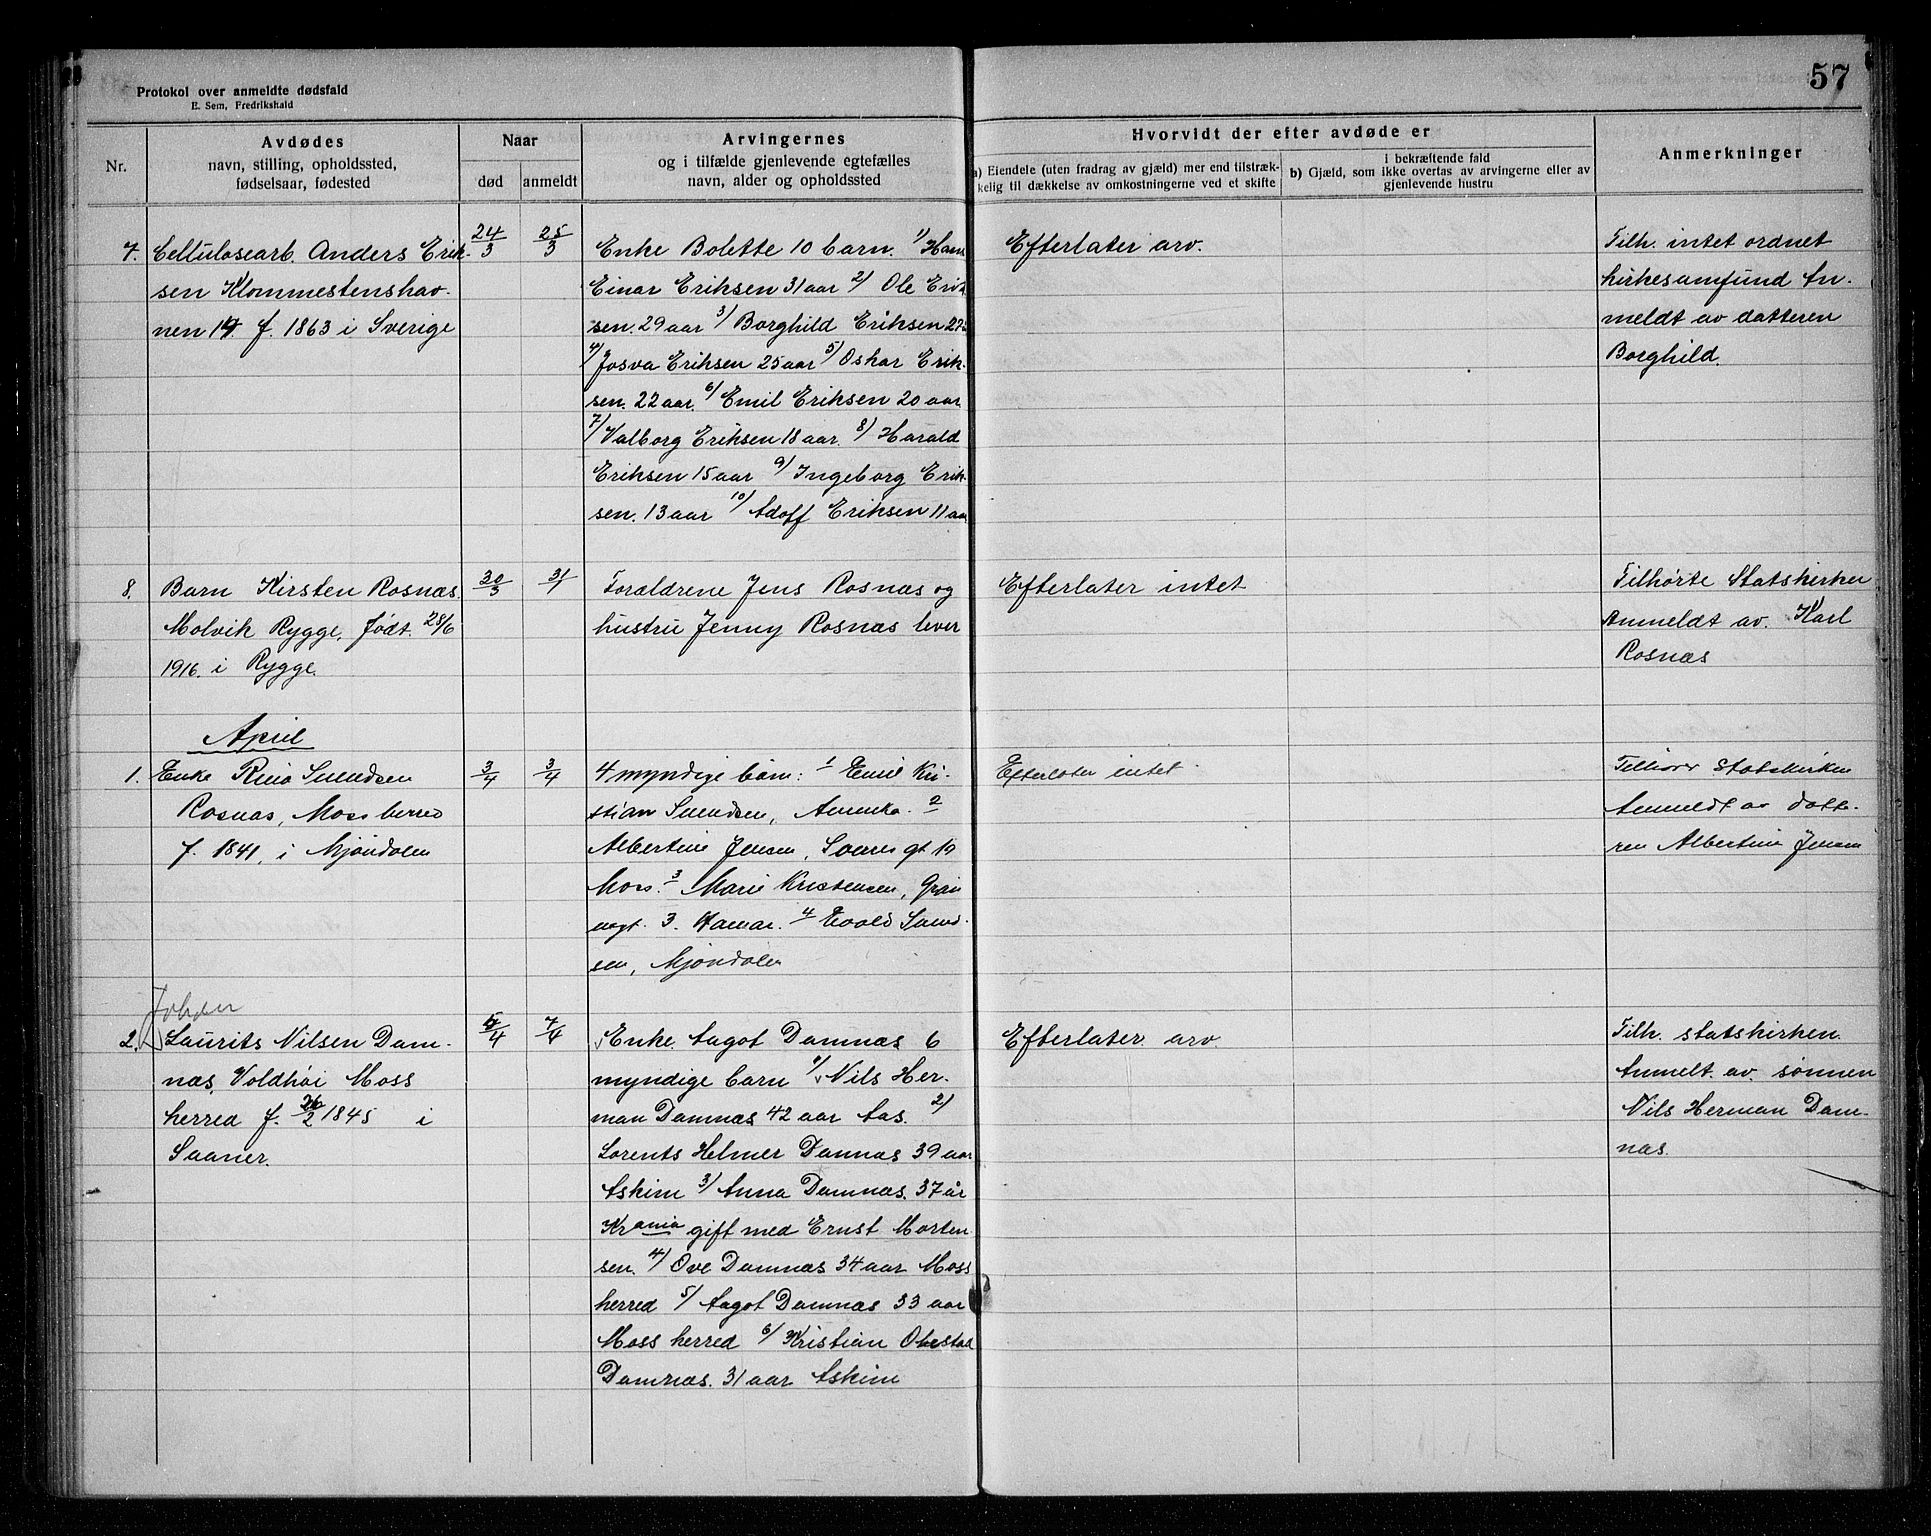 57
Protokol over anmeldte dødsfald
E. Sem, Fredrikshald
Nr.
Avdødes
navn, stilling, opholdssted,
fødselsaar, fødested
Naar
død
anmeldt
Arvingernes
og i tilfælde gjenlevende egtefælles
navn, alder og opholdssted
Hvorvidt der efter avdøde er
a) Eiendele (uten fradrag av gjæld) mer end tilstræk-
kelig til dækkelse av omkostningerne ved et skifte
i bekræftende fald
b) Gjæld, som ikke overtas av arvingerne eller av
gjenlevende hustru
Anmerkninger
7.
Cellulosearb. Anders Erik-
sen Klommestenshav-
nen 19. f. 1863 i Sverige
24/3
25/3
Enke Bolette 10 barn. 1/ Hans
Einar Eriksen 31 aar 2/ Ole Erik
sen. 29 aar 3/ Borghild Eriksen
4/ Josva Eriksen 25 aar 5/ Oskar Erik-
sen. 22 aar. 6/ Emil Eriksen 20 aar
7/ Valborg Eriksen 18 aar. 8/ Harald
Eriksen 15 aar 9/ Ingeborg Erik-
sen. 13 aar 10/ Adoff Eriksen 11 aar
Efterlater arv.
Tilh. intet ordnet
kirkesamfund An-
meldt av datteren
Borghild.
8.
Barn Kirsten Rosnæs.
Molvik Rygge, født. 28/6
1916. i Rygge.
30/3
31/
Forældrene Jens Rosnæs og
hustru Jenny Rosnæs lever
Efterlater intet
Tilhørte Statskirken
Anmeldt av. Karl
Rosnæs
April
1.
Enke Smedsen
Rosnæs, Moss herred
f. 1841, i Mjøndalen
3/4
3/4
4 myndige barn: 1 Emil Kri-
stian Smedsen, Amerika. 2
Albertine Jensen, gt 19
Moss. 3 Marie Kristensen,
3. Hamar. 4 Evald Smed-
sen, Mjøndalen
Efterlater intet
Tilhører Statskirken
Anmeldt av datte-
ren Albertine Jensen
Johan
2.
Laurits Nilsen Dam-
næs, Voldhøi Moss
herred f. 26/2 1845 i
Saaner.
5/4
7/4
Enke. Aagot Damnæs 6
myndige barn 1/ Nils Her-
man Damnæs 42 aar Aas. 2/
Lorents Helmer Damnæs 39 aar
Askim 3/ Anna Damnæs. 37 år
Krania gift med Ernst Morten
sen. 4/ Ove Damnæs 34 aar Moss
herred 5/ Aagot Damnæs 33 aar
Moss herred 6/ Kristian
Damnæs. 31 aar Askim
Efterlater arv.
Tilh. statskirken.
Anmelt. av. sønnen
Nils Herman Dam-
næs.